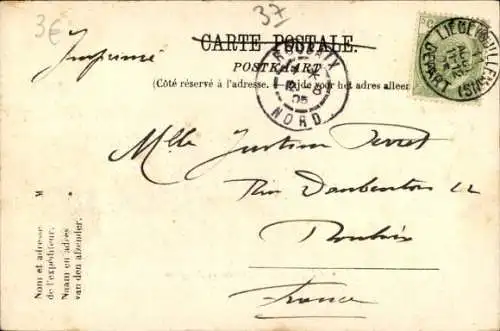 3€
37
Imprimé
CARTE POSTALE.
POSTKAART
(Côté réservé à l'adresse. — Zijde voor het adres alleen
ROUBAIX
NORD
05
LIÉGE (GUILLEMINS)
DÉPART
Mlle Justine Perret
Rue Daubenton 22
Roubaix
France
Nom et adresse M
de l'expéditeur.
Naam en adres
van den afzender.